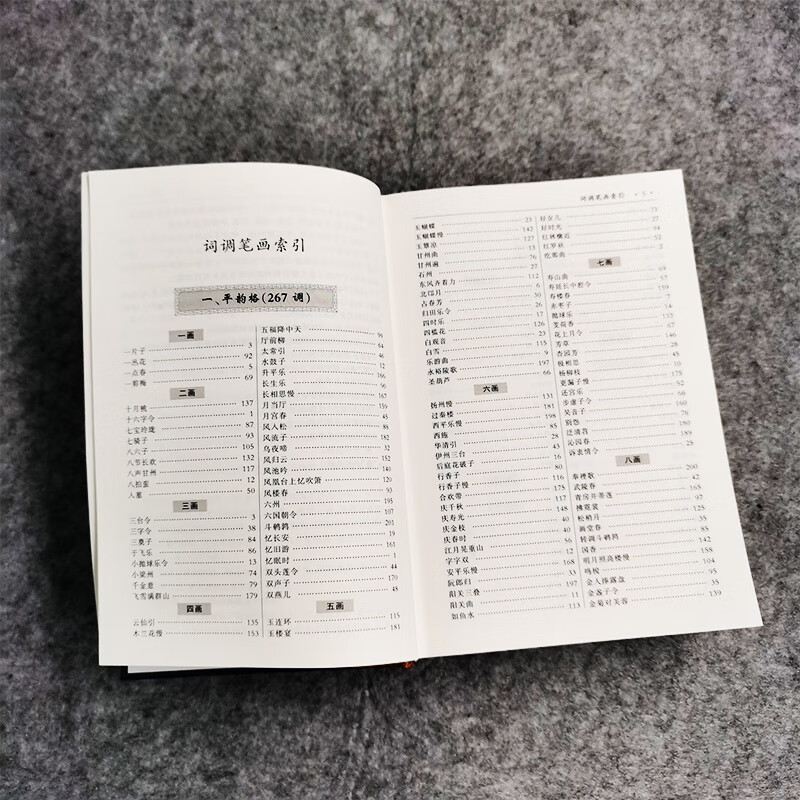 词调笔画索引
一、平韵格(267 调)
一画
一片子 3
一丛花 92
一点春 5
一剪梅 69
二画
十月桃 137
十六字令 1
七宝玲珑 87
七骑子 93
八六子 105
八节长欢 132
八声甘州 117
八拍蛮 12
人塞 50
三画
三台令 3
三字令 38
三奠子 84
于飞乐 86
小抛球乐令 13
小梁州 74
千金意 79
飞雪满群山 179
四画
云仙引 135
木兰花慢 153
五福降中天 96
厅前柳 64
太常引 46
水鼓子 12
升平乐
长生乐
长相思慢 167
月当厅 159
月宫春 45
风入松 89
风流子
乌夜啼 32
风归云 152
凤池吟
凤凰台上忆吹箫
凤楼春 93
六州 195
六国朝令 107
斗鹌鹑 201
忆长安 19
忆旧游 161
忆眠时 1
双头莲令 44
双声子 170
双燕儿 48
五画
玉连环 115
玉楼宴 181
词调笔画索引 • 5 •
玉蝴蝶 23
玉蝴蝶慢 142
玉簟凉 127
甘州曲 13
甘州遍 76
石州 12
东风齐着力 112
北邙月 6
占春芳 30
归田乐令 26
四时乐 17
四槛花 126
白观音 23
白雪 115
乐游曲 5
永裕陵歌 197
圣葫芦 66
六画
扬州慢 131
过秦楼 181
西平乐慢
西施
华清引 28
伊州三台 43
后庭花破子
行香子
行香子慢 116
合欢带 175
庆千秋 147
庆寿光
庆金枝
庆春时 40
江月晃重山 56
字字双 12
安平乐慢 168
阮郎归 197
阳关三叠
阳关曲 11
如鱼水 113
好女儿 75
好时光 27
红林檎近 94
红罗袄 52
纥那曲 2
七画
寿山曲
寿延长中腔令
寿楼春
赤枣子
抛球乐
芰荷香
花上月令
芳草
杏园芳
极相思
杨柳枝
更漏子慢
还宫乐
步虚子令
吴音子
别怨
泛清苕
沁园春
诉衷情令
八画
奉禋歌 200
武陵春 42
青房并蒂莲
拂霓裳
松梢月
画堂春
转调斗鹌鹑
国香
明月照高楼慢
鸣梭
金人捧露盘
金盏子令 35
金菊对芙蓉 139